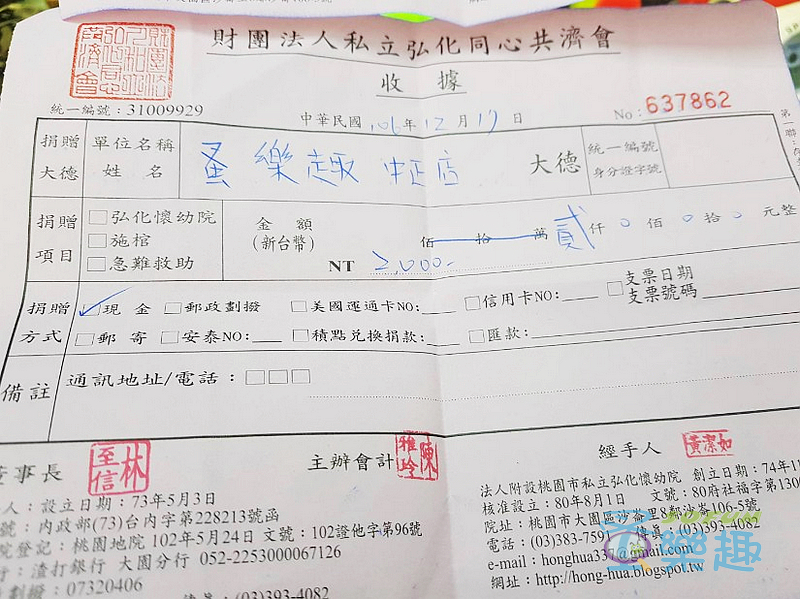 財團法人私立弘化同心共濟會
收據
統一編號：31009929
中華民國 106 年 12 月 17 日
No: 637862
捐贈大德
單位名稱
姓 名
蚤樂趣 中正店
大德
統一編號
身分證字號
捐贈項目
□弘化懷幼院
□施棺
□急難救助
金 額
(新台幣)
佰 拾 萬 貳 仟 0 佰 0 拾 0 元整
NT 2,000-
捐贈方式
☑現 金 □郵政劃撥 □美國運通卡NO: □信用卡NO: □支票日期
支票號碼
□郵 寄 □安泰NO: □積點兌換捐款: □匯款:
備註
通訊地址/電話：□□□
董事長 林至信
主辦會計 陳雅玲
經手人 黃潔如
人：設立日期：73年5月3日
號：內政部(73)台內字第228213號函
院登記：桃園地院 102年5月24日 文號：102證他字第96號
行：渣打銀行 大園分行 052-2253000067126
劃撥：07320406
傳真：(03)393-4082
法人附設桃園市私立弘化懷幼院 創立日期：74年11
核准設立：80年8月1日 文號：80府社福字第1300
院址：桃園市大園區沙崙里8鄰沙崙106-5號
電話：(03)383-759 傳真：(03)393-4082
e-mail：honghua337@gmail.com
網址：http://hong-hua.blogspot.tw
樂趣